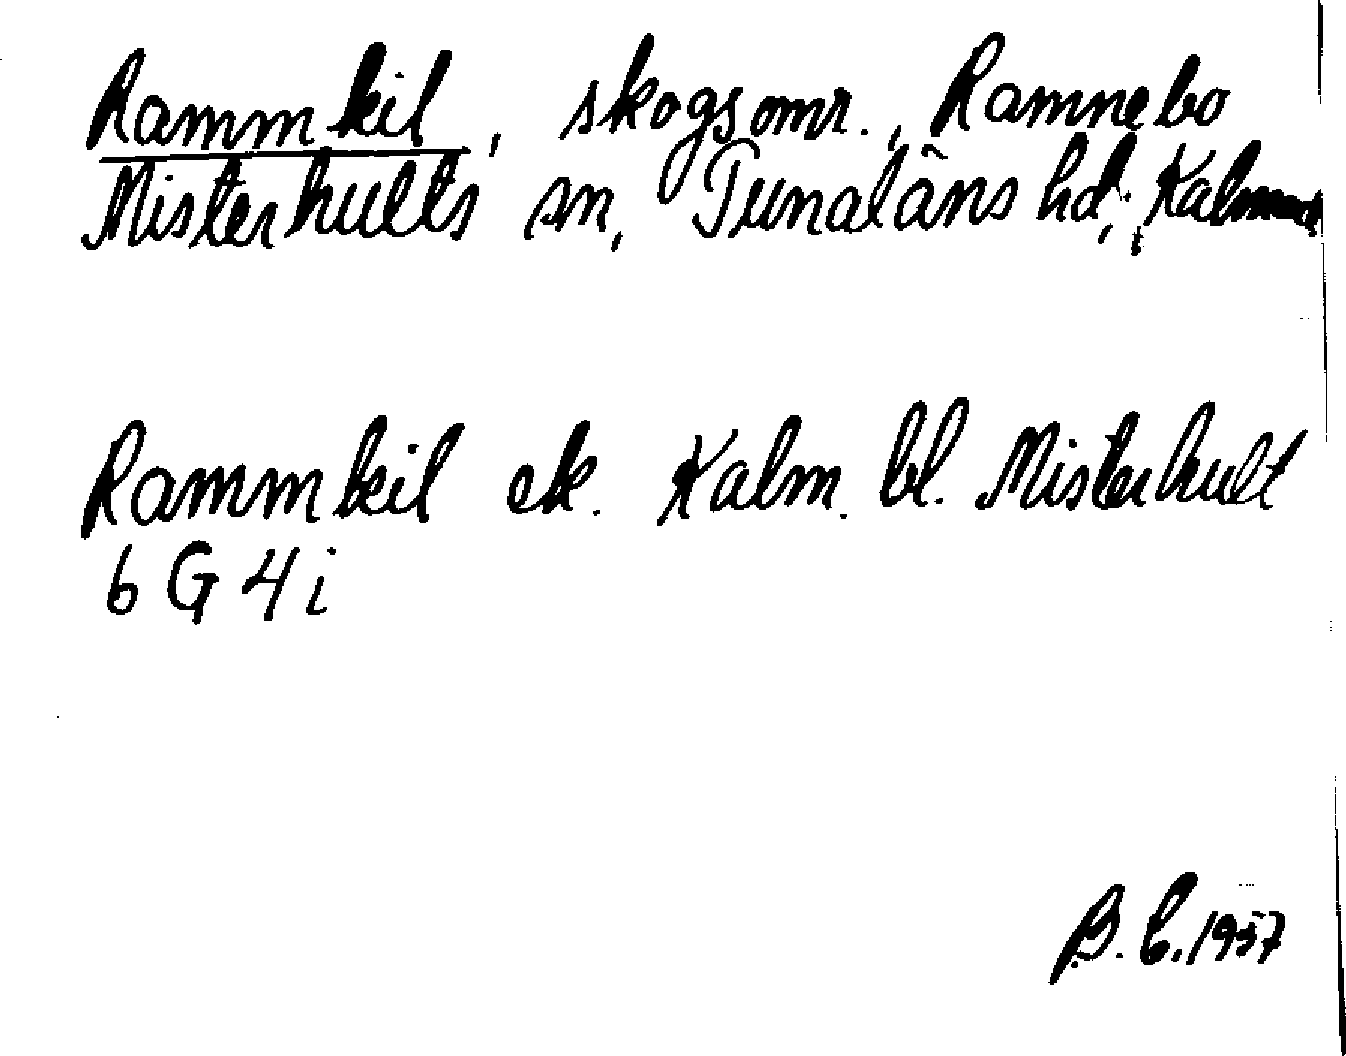 Rammkil, skogsomr., Ramnebo
Misterhults sn, Tunaläns hd, Kalmar
Rammkil ek. Kalm. bl. Misterhult
6 G 4 i
B.C. 1957